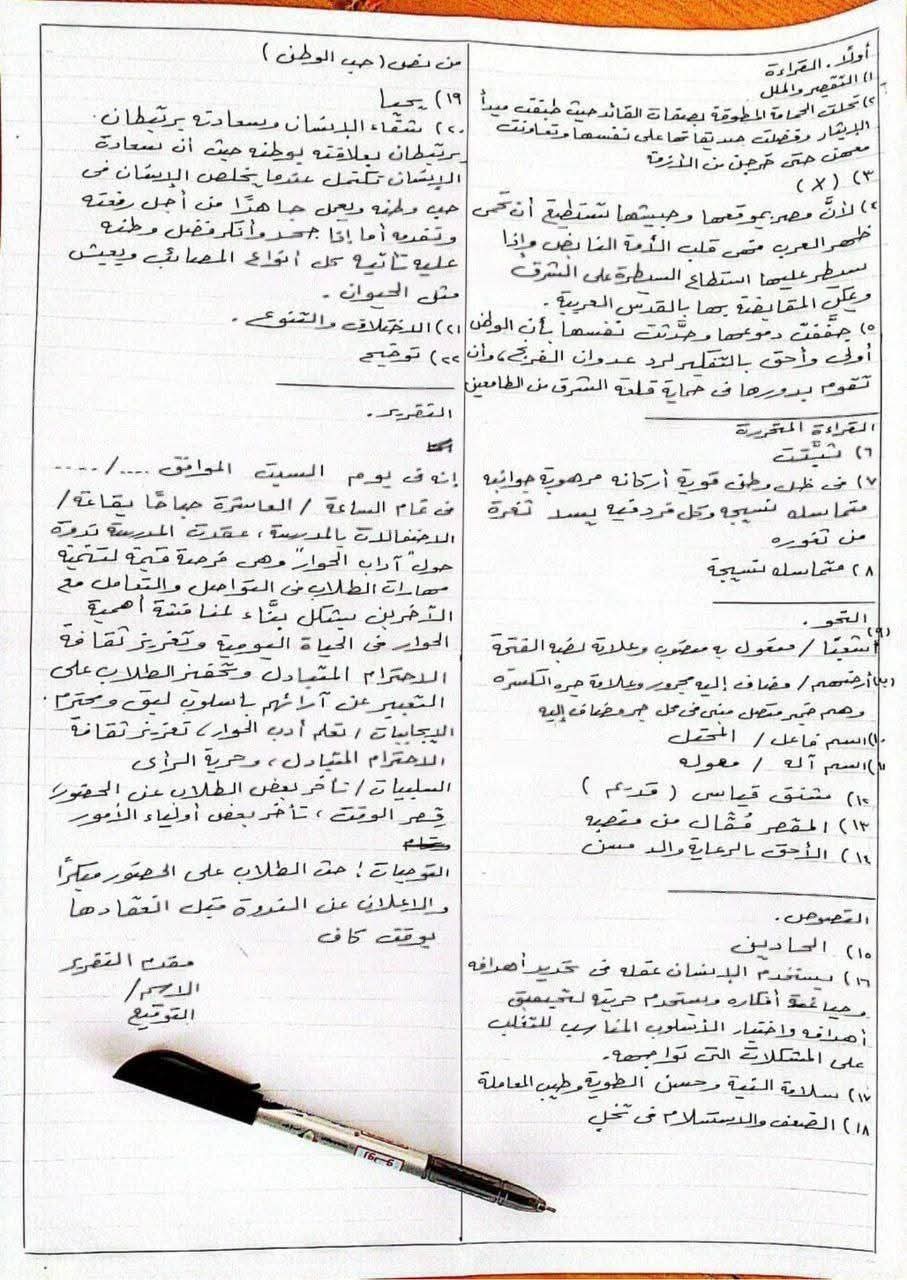 أولًا. القراءة
١) التقصير والملل
٢) تحلت الحمامة المطوقة بصفات القائد حيث طبقت مبدأ
الإيثار وفضلت صديقاتها على نفسها وتعاونت
معهن حتى خرجن من الأزمة
٣) (X)
٤) لأنَّ مصر بموقعها وجيشها تستطيع أن تحمى
ظهر العرب فهى قلب الأمة النابض وإذا
سيطر عليها استطاع السيطرة على الشرق
ويمكن المقايضة بها بالقدس العربية.
٥) جففت دموعها وحدَّثت نفسها بأن الوطن
أولى وأحق بالتفكير لرد عدوان الفرنج، وأن
تقوم بدورها فى حماية قلعة الشرق من الطامعين
القراءة المتحررة
٦) تشبَّثت
٧) فى ظل وطن قوية أركانه مرهوبة جوانبه
متماسك نسيجه وكل فرد فيه يسد ثغرة
من ثغوره
٨) متماسك نسيجه
النحو.
٩) شيئًا / مفعول به منصوب وعلامة نصبه الفتحة
أرضهم / مضاف إليه مجرور وعلامة جره الكسرة
وهم ضمير متصل مبنى فى محل جر مضاف إليه
١٠) اسم فاعل / المحتل
١١) اسم آلة / معوله
١٢) مشتق قياسى (قديم)
١٣) المقصر مُقَال من منصبه
١٤) الأحق بالرعاية والد مسن
النصوص.
١٥) الحادين
١٦) يستخدم الإنسان عقله فى تحديد أهدافه
وصياغة أفكاره ويستخدم حريته لتحقيق
أهدافه واختيار الأسلوب المناسب للتغلب
على المشكلات التى تواجهه.
١٧) سلامة النية وحسن الطوية وطيب المعاملة
١٨) الضعف والاستسلام فى تخلى
من نص (حب الوطن)
١٩) يحيا
٢٠) شقاء الإنسان وسعادته يرتبطان
يرتبطان بعلاقته بوطنه حيث أن سعادة
الإنسان تكتمل عندما يخلص الإنسان فى
حب وطنه ويعمل جاهدًا من أجل رفعته
وتقدمه أما إذا جحد وأنكر فضل وطنه
عليه تأتيه كل أنواع المصائب ويعيش
مثل الحيوان.
٢١) الاختلاف والتنوع.
٢٢) توضيح
التقرير.
إنه فى يوم السبت الموافق ..../....
فى تمام الساعة / العاشرة صباحًا بقاعة /
الاحتفالات بالمدرسة، عقدت المدرسة ندوة
حول "آداب الحوار" وهى فرصة قيمة لتنمية
مهارات الطلاب فى التواصل والتعامل مع
الآخرين بشكل بنَّاء لمناقشة أهمية
الحوار فى الحياة اليومية وتعزيز ثقافة
الاحترام المتبادل وتحفيز الطلاب على
التعبير عن آرائهم بأسلوب لبق ومحترم.
الإيجابيات / تعلم أدب الحوار، تعزيز ثقافة
الاحترام المتبادل، وحرية الرأى
السلبيات / تأخر بعض الطلاب عن الحضور،
قِصر الوقت، تأخر بعض أولياء الأمور
التوصيات: حث الطلاب على الحضور مبكرًا
والإعلان عن الندوة قبل انعقادها
بوقت كاف
مقدم التقرير
الاسم/
التوقيع